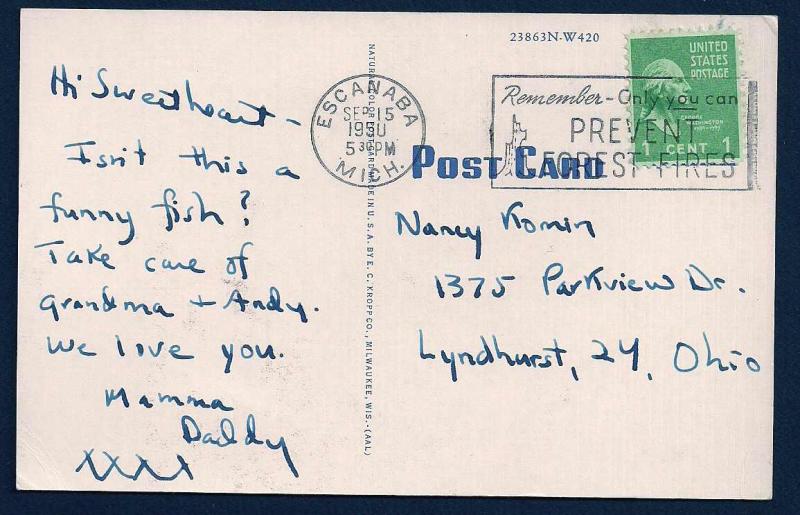 23863N-W420
UNITED
STATES
POSTAGE
GEORGE
WASHINGTON
1 CENT 1
ESCANABA
SEP 15
530 PM
MICH.
Remember - Only you can
PREVENT
FOREST FIRES
POST CARD
Hi Sweetheart -
Isn't this a
funny fish?
Take care of
grandma + Andy.
We love you.
Mamma
Daddy
xxxx
NATURAL COLOR POST CARD MADE IN U. S. A. BY E. C. KROPP CO., MILWAUKEE, WIS. - (AAL)
Nancy Komin
1375 Parkview Dr.
Lyndhurst, 24, Ohio